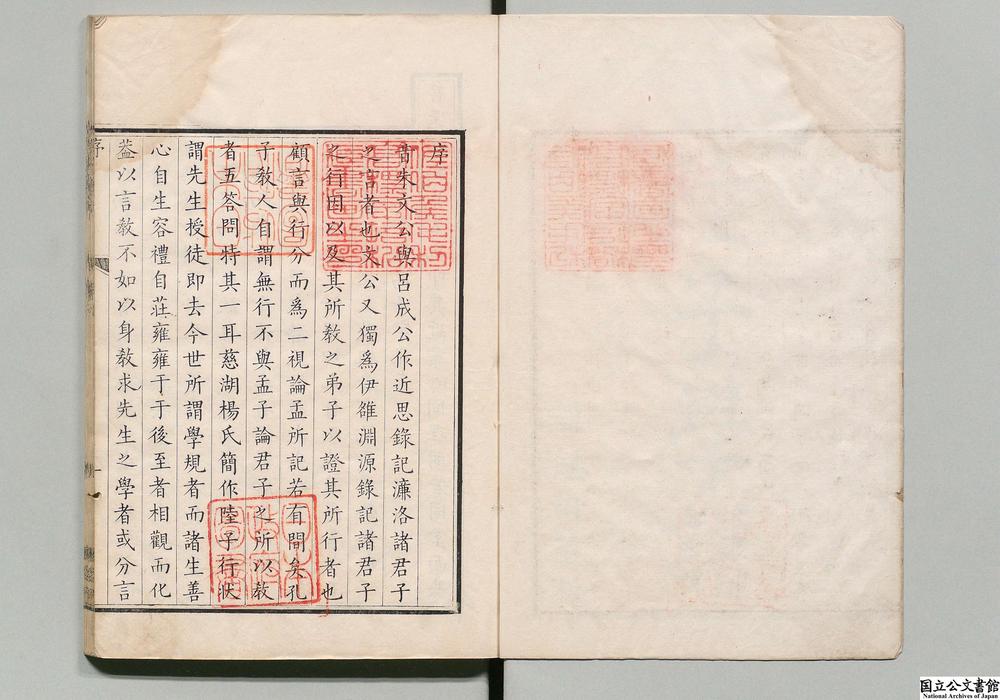 序
昔朱文公與呂成公作近思錄記濂洛諸君子
之言者也文公又獨爲伊雒淵源錄記諸君子
之行因以及其所敎之弟子以證其所行者也
顧言與行分而爲二視論孟所記若有間矣孔
子敎人自謂無行不與孟子論君子之所以敎
者五答問特其一耳慈湖楊氏簡作陸子行狀
謂先生授徒即去今世所謂學規者而諸生善
心自生容禮自莊雍雍于于後至者相觀而化
葢以言敎不如以身敎求先生之學者或分言
序
一
国立公文書館
National Archives of Japan